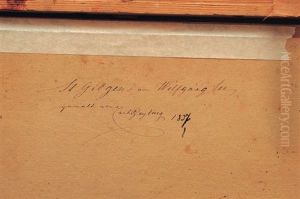 St Gilgen am Wolfgang See
gemalt von
1837
NiceArtGallery.com